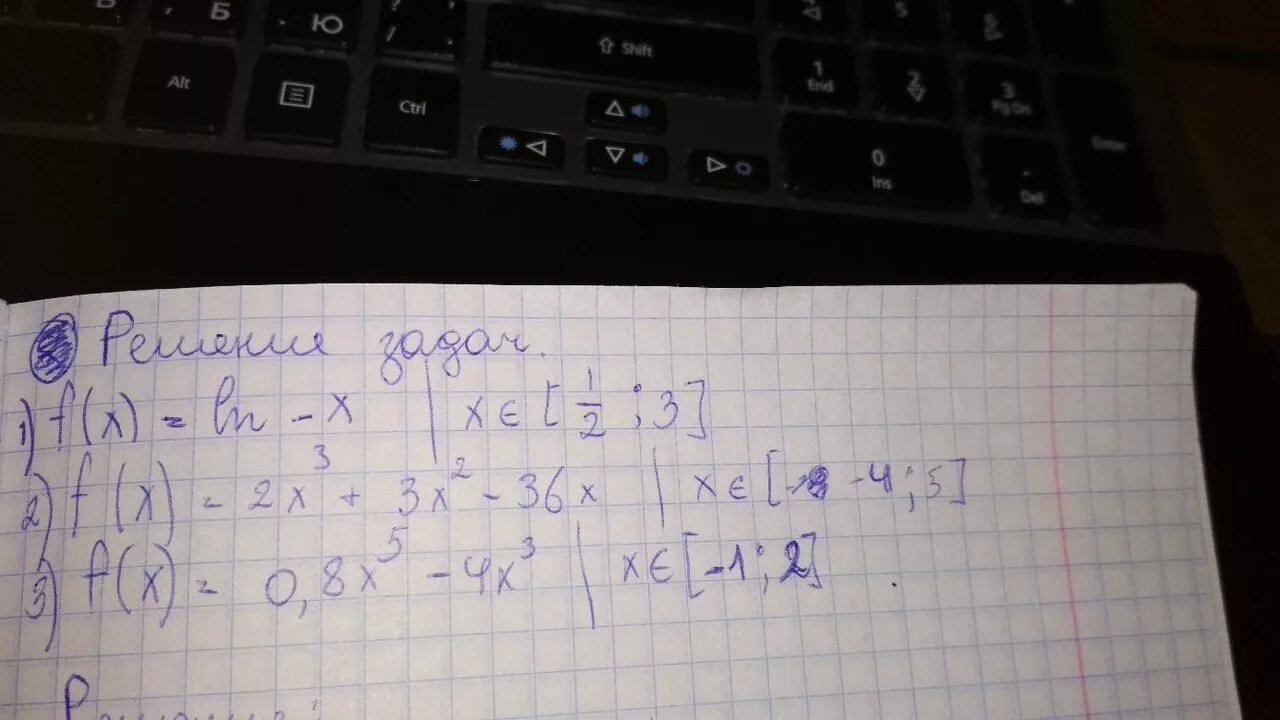 Б Ю ? /
5 6
Alt Ctrl ⇧ Shift 1 End 2 3 Pg Dn
0 Ins . Del Enter
Решение задач.
1) f(x) = ln - x | x ∈ [1/2 ; 3]
2) f(x) = 2x³ + 3x² - 36x | x ∈ [-4 ; 5]
3) f(x) = 0,8x⁵ - 4x³ | x ∈ [-1 ; 2] .